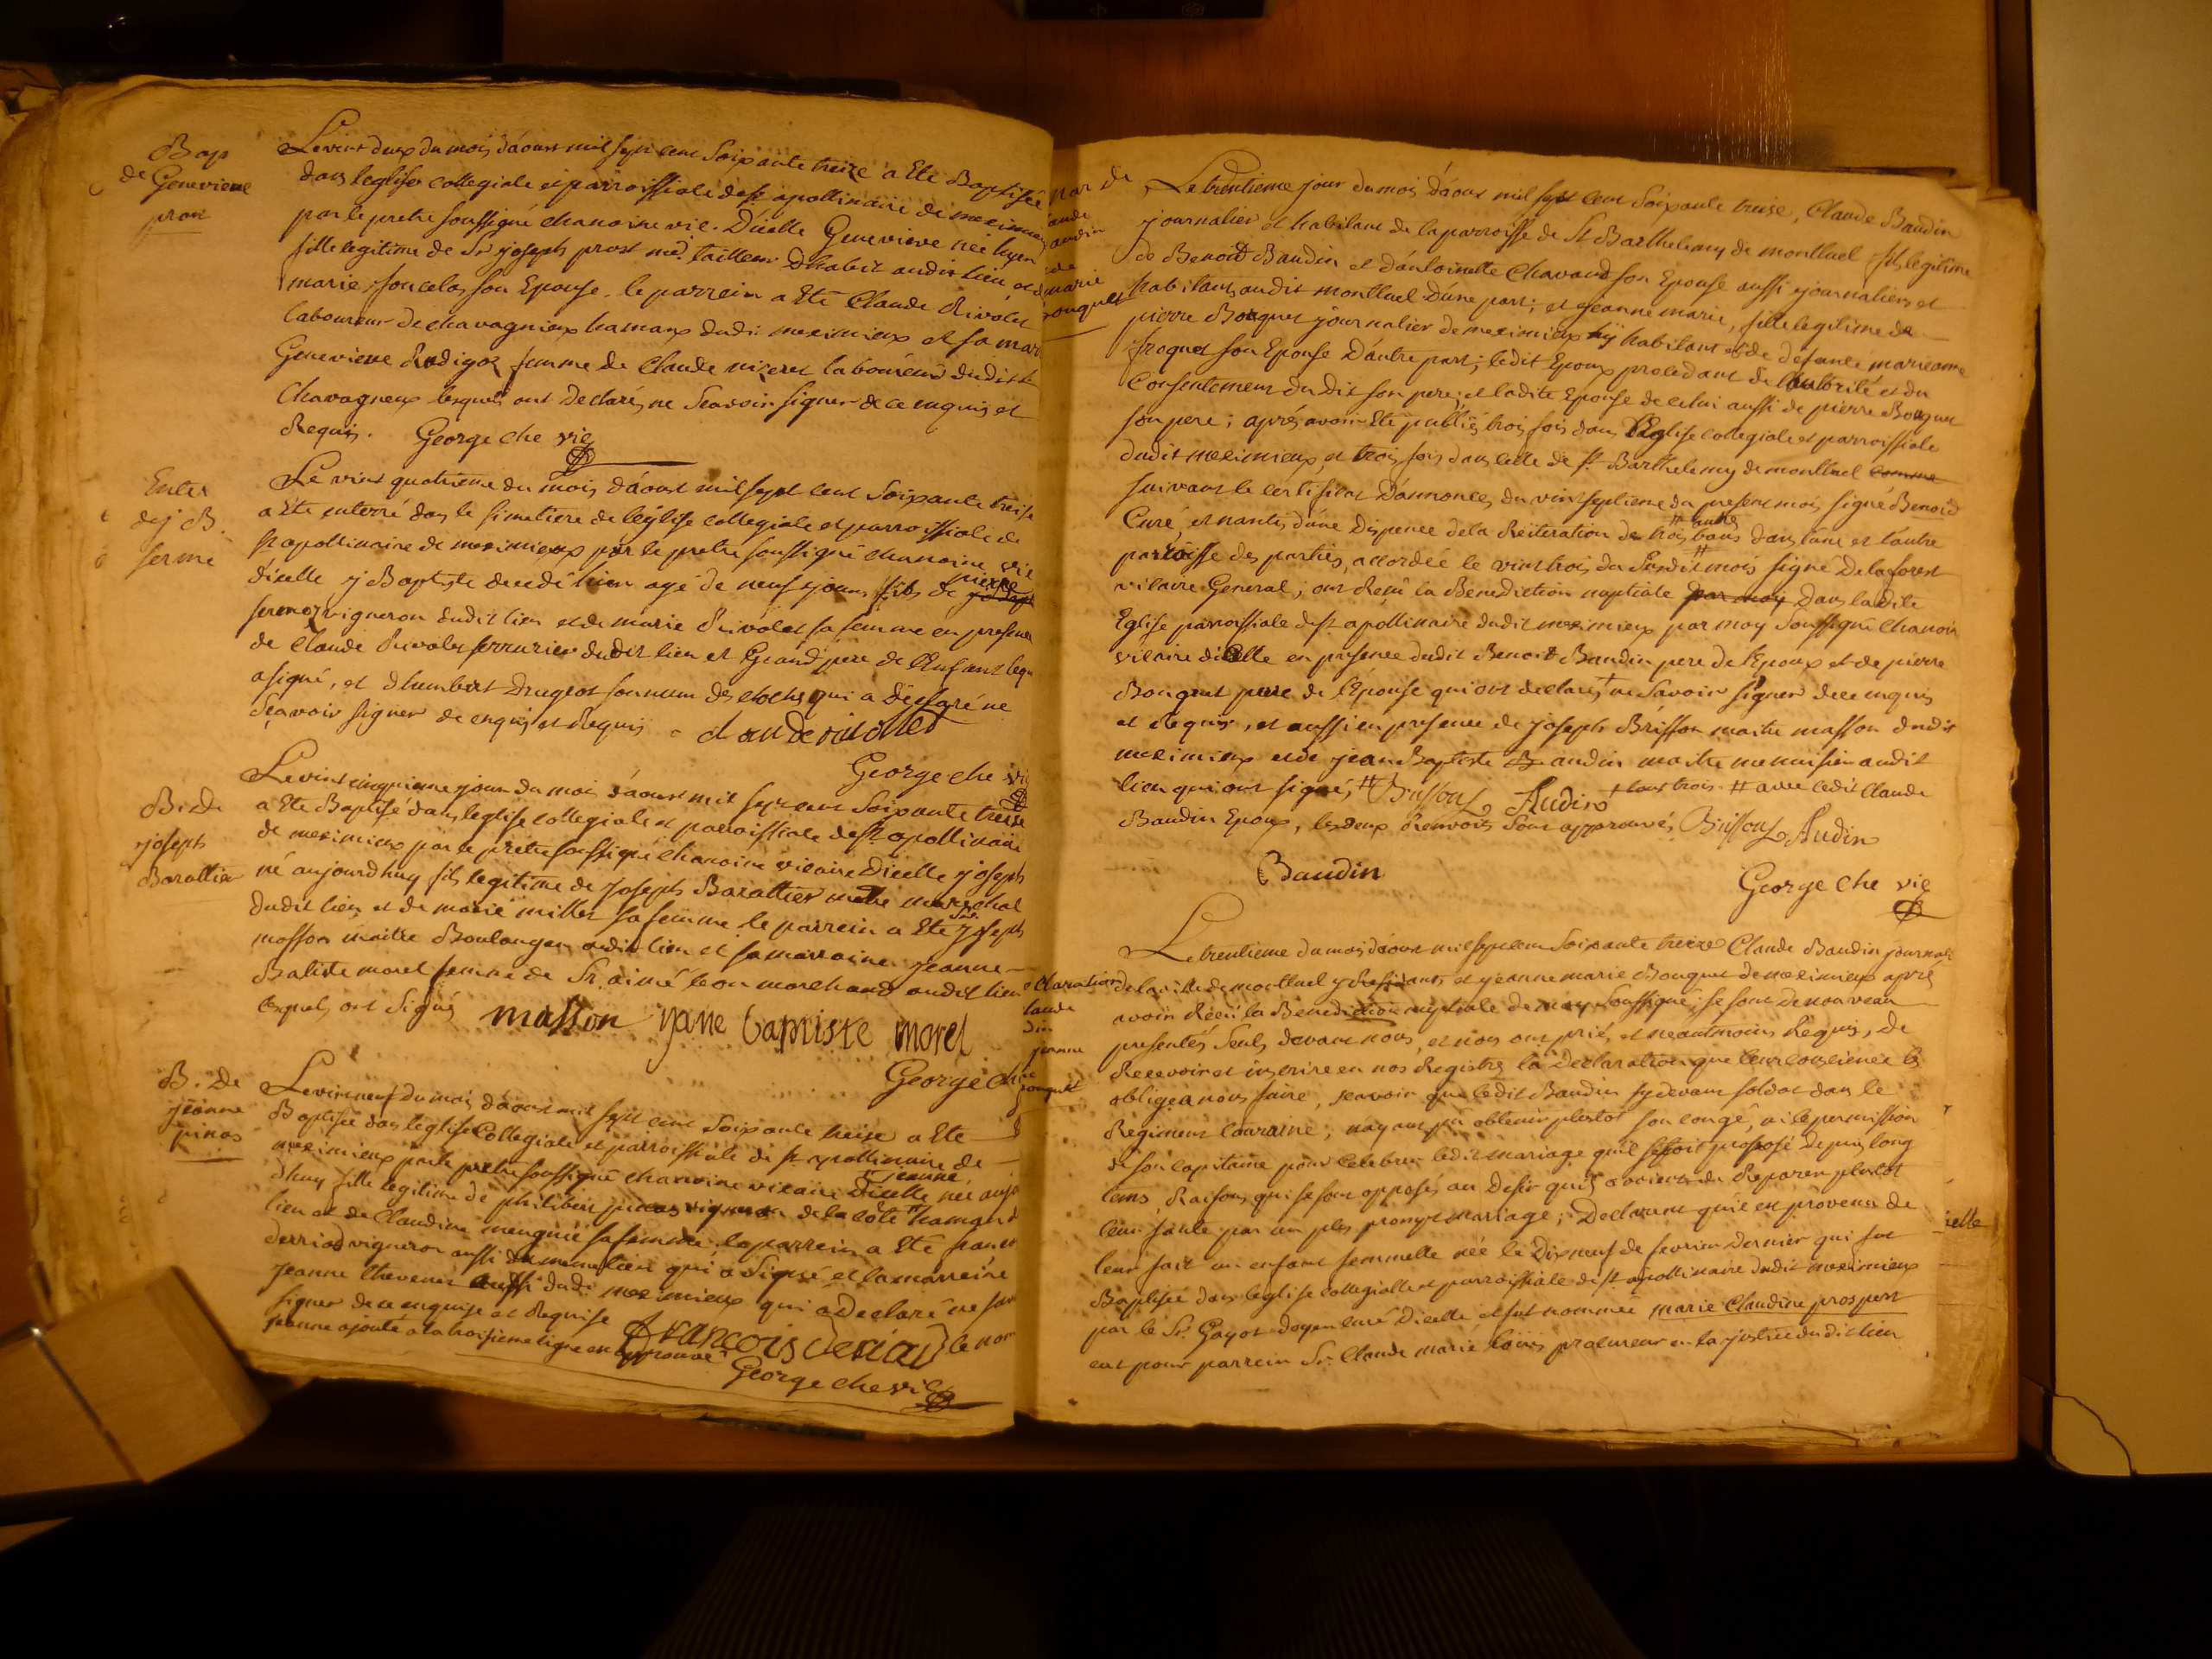 Bap
de Genevieve
prost
Le vint deux du mois d'aoust mil sept cent soixante treize a Eté Baptisée
dans leglise collegiale et parroissiale de st apollinaire de meximieux
par le pretre soussigné chanoine vic. D'icelle Genevieve née hyer
fille legitime de Sr joseph prost md. tailleur D'habit audit lieu et de
marie son Epouse. le parrein a Eté Claude Rivolet
laboureur de chavagnieux hamaux dudit meximieux et sa mar
Genevieve Rodigoz femme de Claude mizeret laboureur dudit
Chavagneux lesquels ont Declarés ne Scavoir signer de ce enquis et
Requis. George che vic
Enter
de j B.
serme
Le vint quatrieme du mois d'aoust mil sept cent Soixante treise
a Eté enterré dans le simetiere de l'église collegiale et parroissiale de
st apollinaire de meximieux par le pretre soussigné chanoine vic
pierre
dicelle j Baptiste decedé hier agé de neuf jours fils de
sermez vigneron dudit lieu et de marie Rivolet sa femme en presence
de Claude Rivolet serrurier dudit lieu et Grand pere de l'Enfant lequ
a signé, et d'humbert Drageot sonneur des cloches qui a Déclaré ne
Sçavoir signer de enquis et Requis. claude rivolet
George che vic
B. de
joseph
Barattier
Le vint cinquieme jour du mois d'aoust mil sept cent Soixante treise
a Eté Baptisé dans leglise collegiale et parroissiale de st apollinaire
de meximieux par le pretre soussigné chanoine vicaire D'icelle joseph
né aujourdhuy fils legitime de Joseph Barattier maitre marechal
dudit lieu et de marie millet sa femme le parrein a Eté Joseph
masson maitre Boulanger audit lieu et sa marraine jeanne
Batiste morel femme de Sr. aimé leon marchand audit lieu
lesquels ont Signés masson jane baptiste morel
George che
B. De
jeanne
pinos
Le vint neuf du mois d'aoust mil sept cent Soixante treise a Eté
Baptisée dans leglise Collegiale et parroissiale de st apollinaire de
meximieux par le pretre soussigné chanoine vicaire D'icelle née aujo
jeanne
dhuy fille legitime de philibert pinos vigneron de la cote hamau d
lieu et de Claudine sa femme, le parrein a Eté francois
Derriod vigneron aussi du meme lieu qui a Signé et la marreine
jeanne thevenet aussi dudit meximieux qui a Declaré ne sav
signer de ce enquise et Requise francois Deriau le nom
jeanne ajouté a la troisieme ligne en approuvé
George che vic
mar de
aude
audin
et de
marie
ouquet
Le trentieme jour du mois d'aout mil sept cent Soixante treise, Claude Baudin
journalier et habitant de la parroisse de St Barthelemy de montluel fils legitime
de Benoit Baudin et d'antoinette Chavand son Epouse aussi journaliers et
habitants audit montluel d'une part; et jeanne marie, fille legitime de
pierre Bouquet journalier de meximieux y habitant et de defunte marieanne
froquet son Epouse D'autre part; ledit Epoux procedant de l'autorité et du
Consentement du Dit son pere; et ladite Epouse de celui aussi de pierre Bouquet
son pere; aprés avoir Eté publiés trois fois dans l'Eglise collegiale et parroissiale
dudit meximieux, et trois fois dans celle de st Barthelemy de montluel comme
suivant le certificat D'annonces du vint septieme du present mois signé Benoid
Curé, et nantis d'une Dispence de la Réiteration de trois bans dans l'une et l'autre
# autres
parroisse des parties, accordée le vint trois du Susdit mois signé Delaforest
vicaire General; ont Reçu la Benediction nuptiale par moy dans ladite
Eglise parroissiale de st apollinaire dudit meximieux par moy Soussigné Chanoine
vicaire d'icelle en presence dudit Benoit Baudin pere de l'Epoux et de pierre
Bouquet pere de l'Epouse qui ont declarés + ne savoir signer de ce enquis
et Requis, et aussi en presence de joseph Brisson maitre masson dudit
meximieux et de jean Baptiste audin maitre menuisier audit
lieu qui ont signé, # Buisson Audin + tous trois # avec ledit Claude
Baudin Epoux, les deux Renvois Sont approuvés Buisson Audin
Baudin
George Che vic
eclaration
laude
din
jeanne
ie
ouquet
Le trentieme du mois d'aout mil sept cent Soixante treize Claude Baudin journal
de la ville de montluel y Residant et jeanne marie Bouquet de meximieux aprés
avoir Reçu la Benediction nuptiale de moy Soussigné se sont de nouveau
presentés Seuls devant nous, et nous ont prié, et neantmoins Requis, de
Recevoir et inscrire en nos Registres la declaration que leur conscience les
obligea nous faire, scavoir que ledit Baudin cy devant soldat dans le
Regiment touraine, n'ayant pu obtenir plustot son congé, ni le permission
de son capitaine pour celebrer ledit mariage qu'il s'étoit proposé depuis long
tems, Raisons qui se sont opposés au Desir qu'ils avoient de Reparer plustot
leur faute par un plus prompt mariage; Declarent qu'il est provenu de
leur fait un enfant femmelle née le Dixneuf de fevrier Dernier qui fut
Baptisée dans leglise collegialle et parroissiale de st apollinaire dudit meximieux
par le Sr. Gayot doyen curé D'icelle et fut nommée marie Claudine prospert
eut pour parrein Sr. Claude marie procureur en la justice dudit lieu
ielle